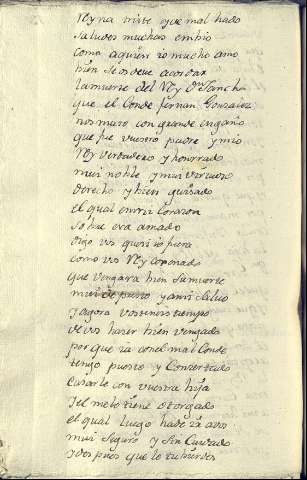 Reyna triste que mal hado
saludes muchas embio
como aquien io mucho amo
bien se os deve acordar
la muerte del Rey Don Sancho
que el Conde fernan Gonzalez
nos mato con grande engaño
que fue vuestro padre y mio
Rey verdadero y honrrado
mui noble y mui virtuoso
derecho y bien guisado
el qual en mi Corazon
sobre era amado
digo vos quan io fuera
como vos Rey Coronado
que vengara bien su muerte
mui de presto y a mi salvo
Y agora vos teneis tiempo
de vos hazer bien vengado
por que ia con el mal Conde
tengo puesto y Concertado
Casarle con vuestra hija
Y el me lo tiene otorgado
el qual luego hade ir a vos
mui seguro y sin Cuidado
Y despues que lo tubierdes